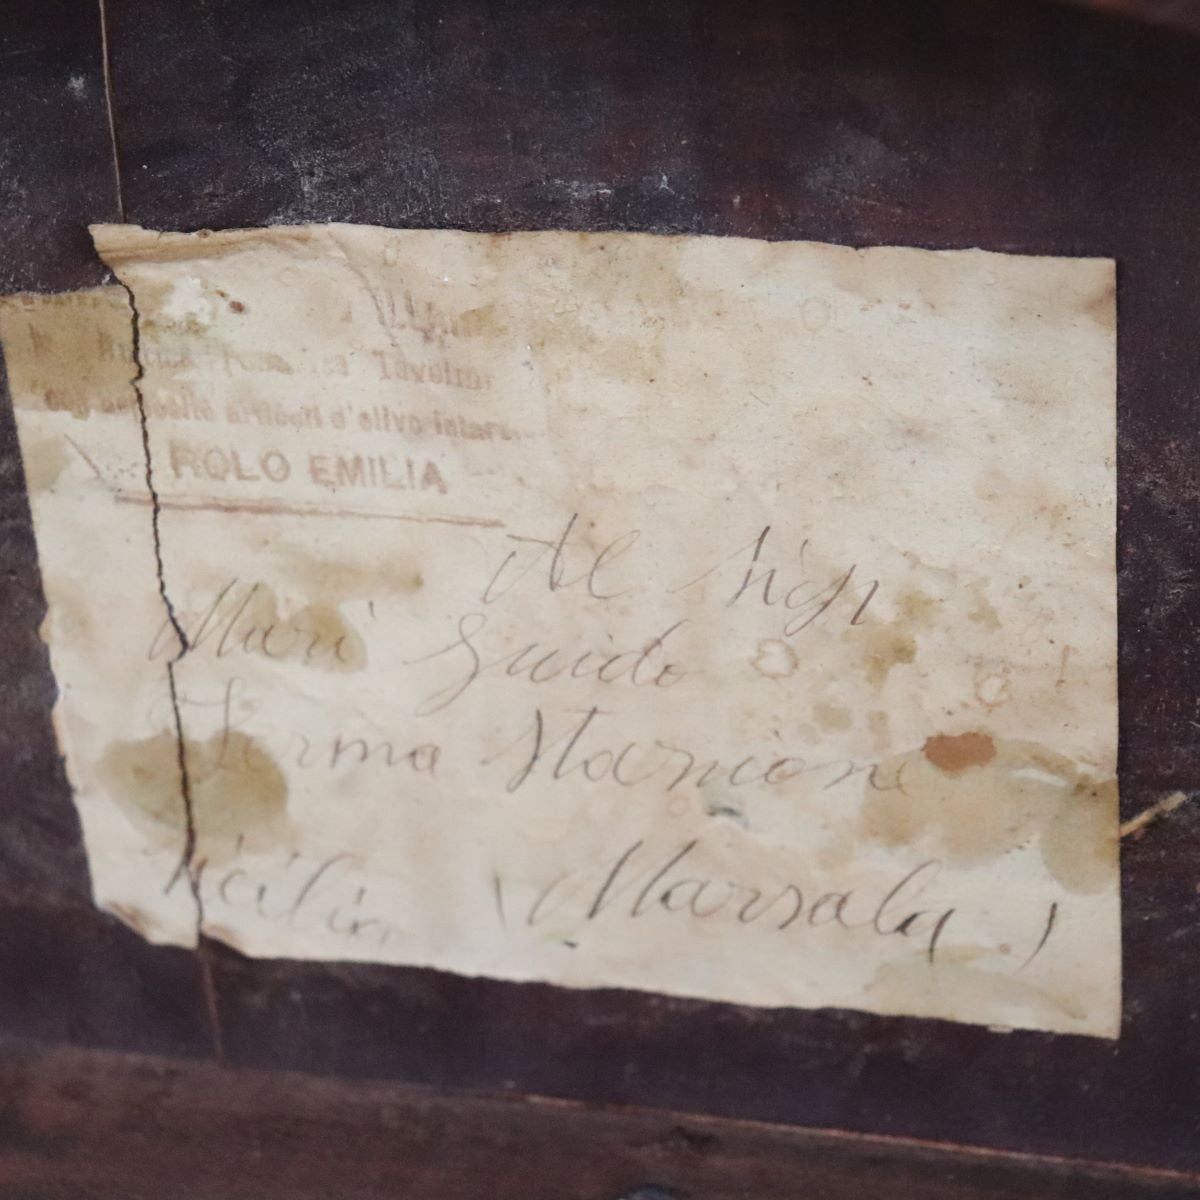 Tavolini
articoli d'olivo intars
ROLO EMILIA
Al Sign
Mari Guido
Ferma Stazione
Sicilia (Marsala)